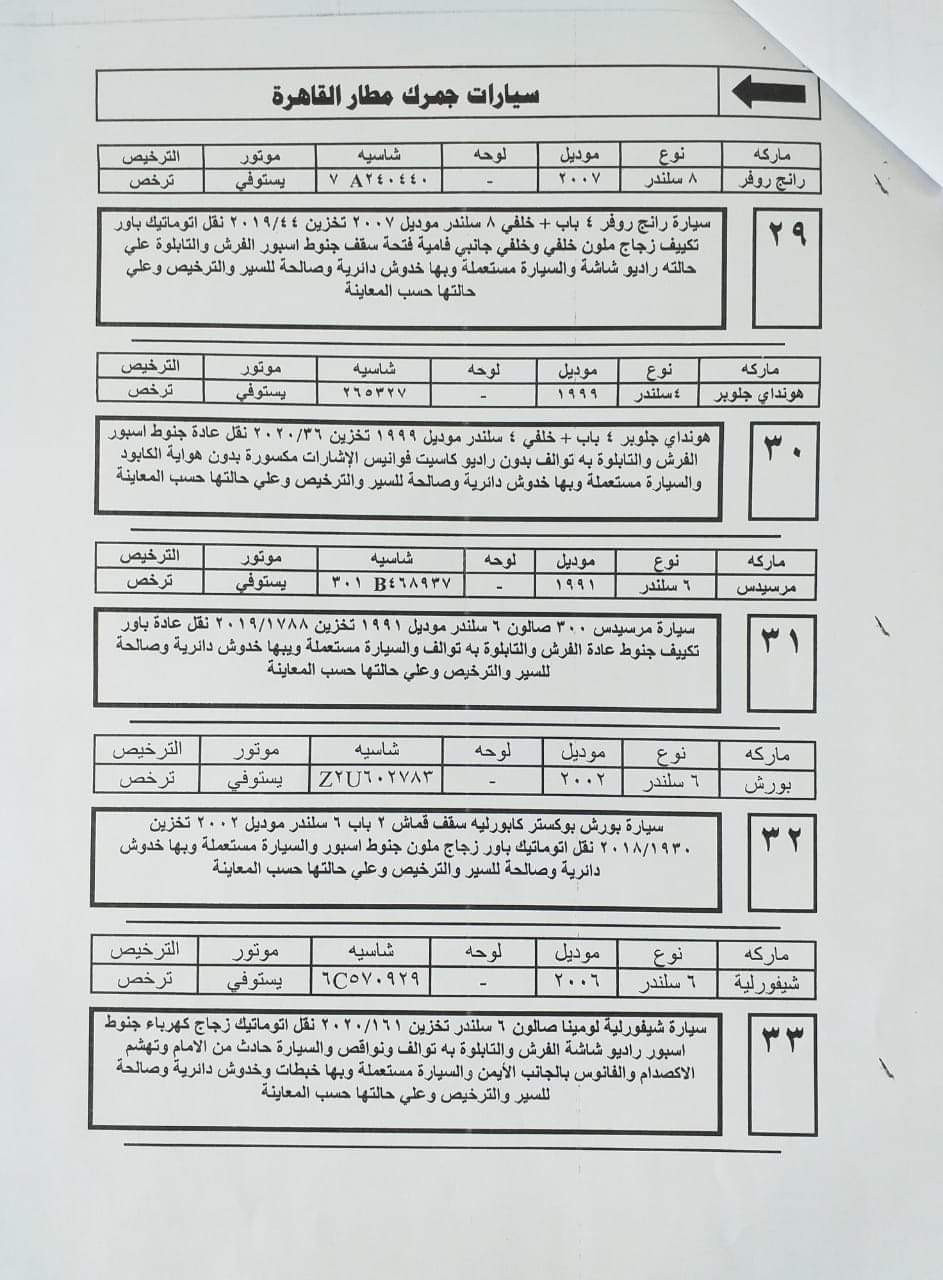 سيارات جمرك مطار القاهرة
ماركه نوع موديل لوحه شاسيه موتور الترخيص
رانج روفر ٨ سلندر ٢٠٠٧ - ٧ A٢٤٠٤٤٠ يستوفي ترخص
٢٩
سيارة رانج روفر ٤ باب + خلفي ٨ سلندر موديل ٢٠٠٧ تخزين ٢٠١٩/٤٤ نقل اتوماتيك باور
تكييف زجاج ملون خلفي وخلفي جانبي فامية فتحة سقف جنوط اسبور الفرش والتابلوة علي
حالته راديو شاشة والسيارة مستعملة وبها خدوش دائرية وصالحة للسير والترخيص وعلي
حالتها حسب المعاينة
ماركه نوع موديل لوحه شاسيه موتور الترخيص
هونداي جلوبر ٤سلندر ١٩٩٩ - ٢٦٥٣٢٧ يستوفي ترخص
٣٠
هونداي جلوبر ٤ باب + خلفي ٤ سلندر موديل ١٩٩٩ تخزين ٢٠٢٠/٣٦ نقل عادة جنوط اسبور
الفرش والتابلوة به توالف بدون راديو كاسيت فوانيس الإشارات مكسورة بدون هواية الكابود
والسيارة مستعملة وبها خدوش دائرية وصالحة للسير والترخيص وعلي حالتها حسب المعاينة
ماركه نوع موديل لوحه شاسيه موتور الترخيص
مرسيدس ٦ سلندر ١٩٩١ - ٣٠١ B٤٦٨٩٣٧ يستوفي ترخص
٣١
سيارة مرسيدس ٣٠٠ صالون ٦ سلندر موديل ١٩٩١ تخزين ٢٠١٩/١٧٨٨ نقل عادة باور
تكييف جنوط عادة الفرش والتابلوة به توالف والسيارة مستعملة ويبها خدوش دائرية وصالحة
للسير والترخيص وعلي حالتها حسب المعاينة
ماركه نوع موديل لوحه شاسيه موتور الترخيص
بورش ٦ سلندر ٢٠٠٢ - Z٢U٦٠٢٧٨٣ يستوفي ترخص
٣٢
سيارة بورش بوكستر كابورليه سقف قماش ٢ باب ٦ سلندر موديل ٢٠٠٢ تخزين
٢٠١٨/١٩٣٠ نقل اتوماتيك باور زجاج ملون جنوط اسبور والسيارة مستعملة وبها خدوش
دائرية وصالحة للسير والترخيص وعلي حالتها حسب المعاينة
ماركه نوع موديل لوحه شاسيه موتور الترخيص
شيفورلية ٦ سلندر ٢٠٠٦ - ٦C٥٧٠٩٢٩ يستوفي ترخص
٣٣
سيارة شيفورلية لومينا صالون ٦ سلندر تخزين ٢٠٢٠/١٦١ نقل اتوماتيك زجاج كهرباء جنوط
اسبور راديو شاشة الفرش والتابلوة به توالف ونواقص والسيارة حادث من الامام وتهشم
الاكصدام والفانوس بالجانب الأيمن والسيارة مستعملة وبها خبطات وخدوش دائرية وصالحة
للسير والترخيص وعلي حالتها حسب المعاينة